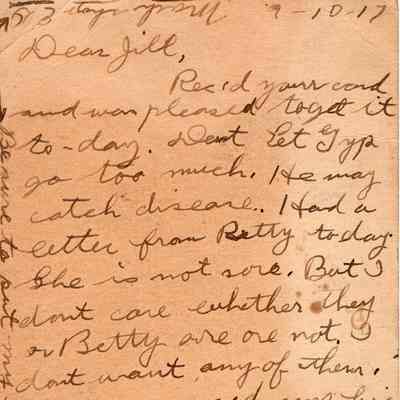 9-10-17
Dear Jill,
Rec'd your card
and was pleased to get it
to-day. Dont let Gyp
go too much. He may
catch disease. Had a
letter from Betty today.
She is not sore. But I
dont care whether they
or Betty are ore not. I
dont want any of them.
Be sure to put my